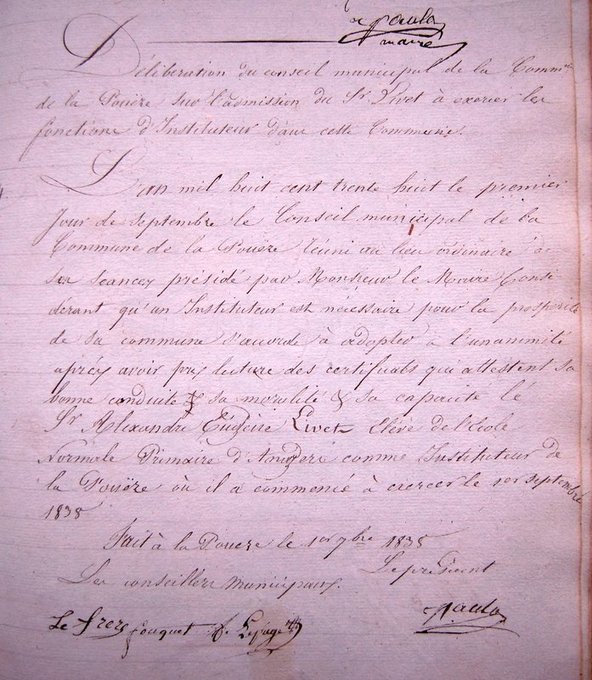 Paula
maire
Délibération du conseil municipal de la Comm.ne
de la Pouëze sur l'admission du Sr. Livet à exercer les
fonctions d'Instituteur dans cette Commune.
L'an mil huit cent trente huit le premier
jour de septembre le Conseil municipal de la
Commune de la Pouëze réuni au lieu ordinaire de
ses séances présidé par Monsieur le Maire Consi
dérant qu'un Instituteur est nécessaire pour la prospérité
de sa commune s'accorde à adopter à l'unanimité
après avoir pris lecture des certificats qui attestent sa
bonne conduite & sa moralité & sa capacité le
Sr. Alexandre Eugène Livet Elève de l'école
Normale Primaire d'Angers comme Instituteur de
la Pouëze où il a commencé à exercer le 1er septembre
1838
Fait à la Pouëze le 1er 7bre 1838
Les conseillers municipaux. Le président
Le frere fouquet Lepage Paula